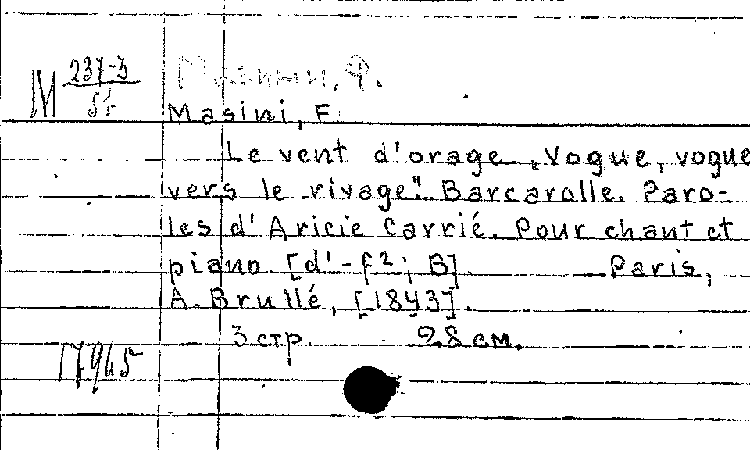 M 237-3
55
Масини, Ф.
Masini, F.
Le vent d'orage „Vogue, vogue
vers le rivage". Barcarolle. Paro-
les d'Aricie Carrié. Pour chant et
piano. [d'-f²; B] Paris,
A. Brullé, [1843].
3 стр. 28 см.
17945